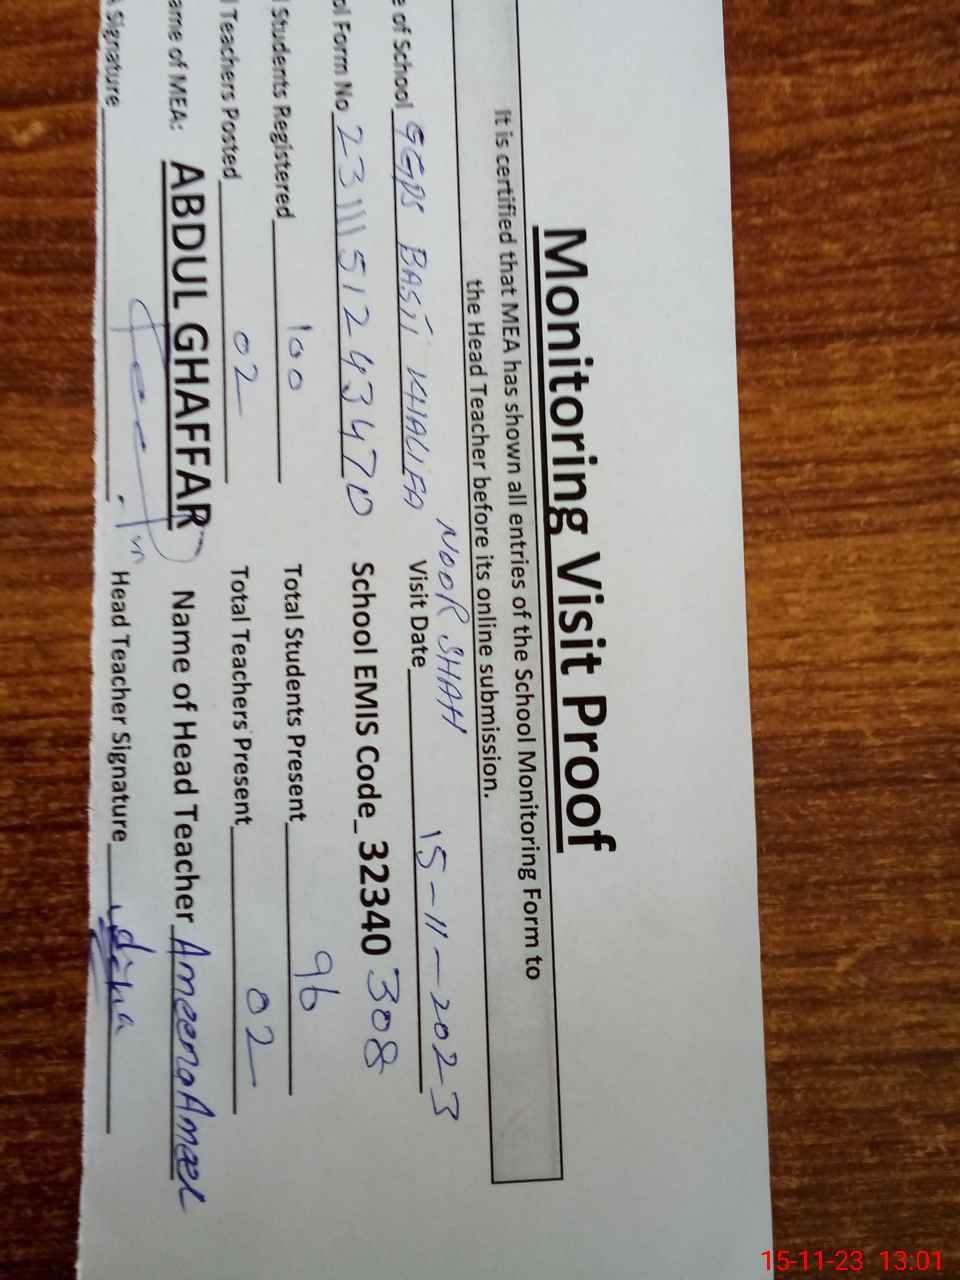 Monitoring Visit Proof
It is certified that MEA has shown all entries of the School Monitoring Form to
the Head Teacher before its online submission.
e of School GGPS BASTI KHALIFA NOOR SHAH Visit Date 15-11-2023
ol Form No 2311151243470 School EMIS Code_32340308
l Students Registered 100 Total Students Present 96
l Teachers Posted 02 Total Teachers Present 02
ame of MEA: ABDUL GHAFFAR Name of Head Teacher Ameena
Signature Head Teacher Signature
15-11-23 13:01